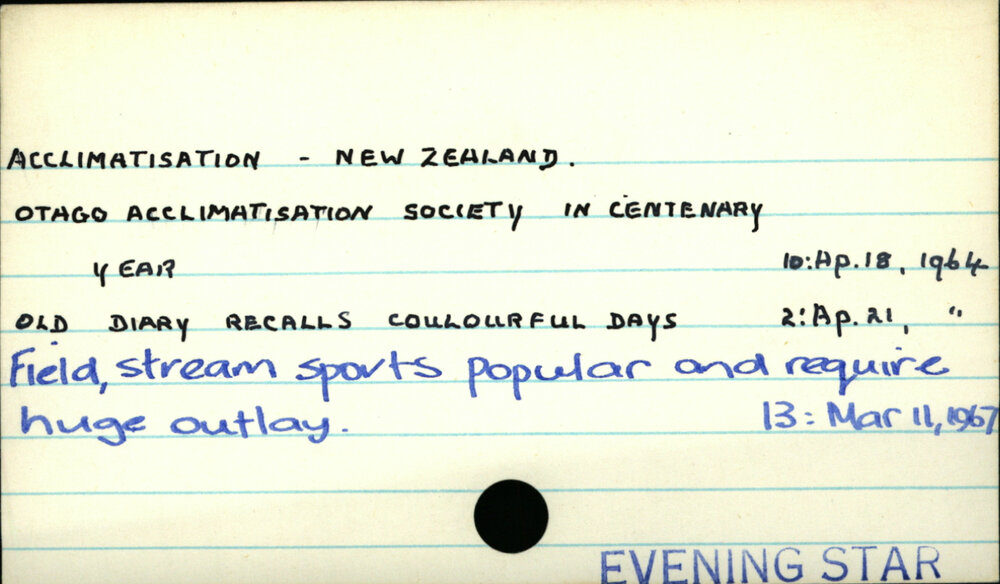 ACCLIMATISATION - NEW ZEALAND.
OTAGO ACCLIMATISATION SOCIETY IN CENTENARY
YEAR 10:Ap.18, 1964
OLD DIARY RECALLS COULOURFUL DAYS 2:Ap.21, "
Field, stream sports popular and require
huge outlay. 13: Mar 11, 1967
EVENING STAR